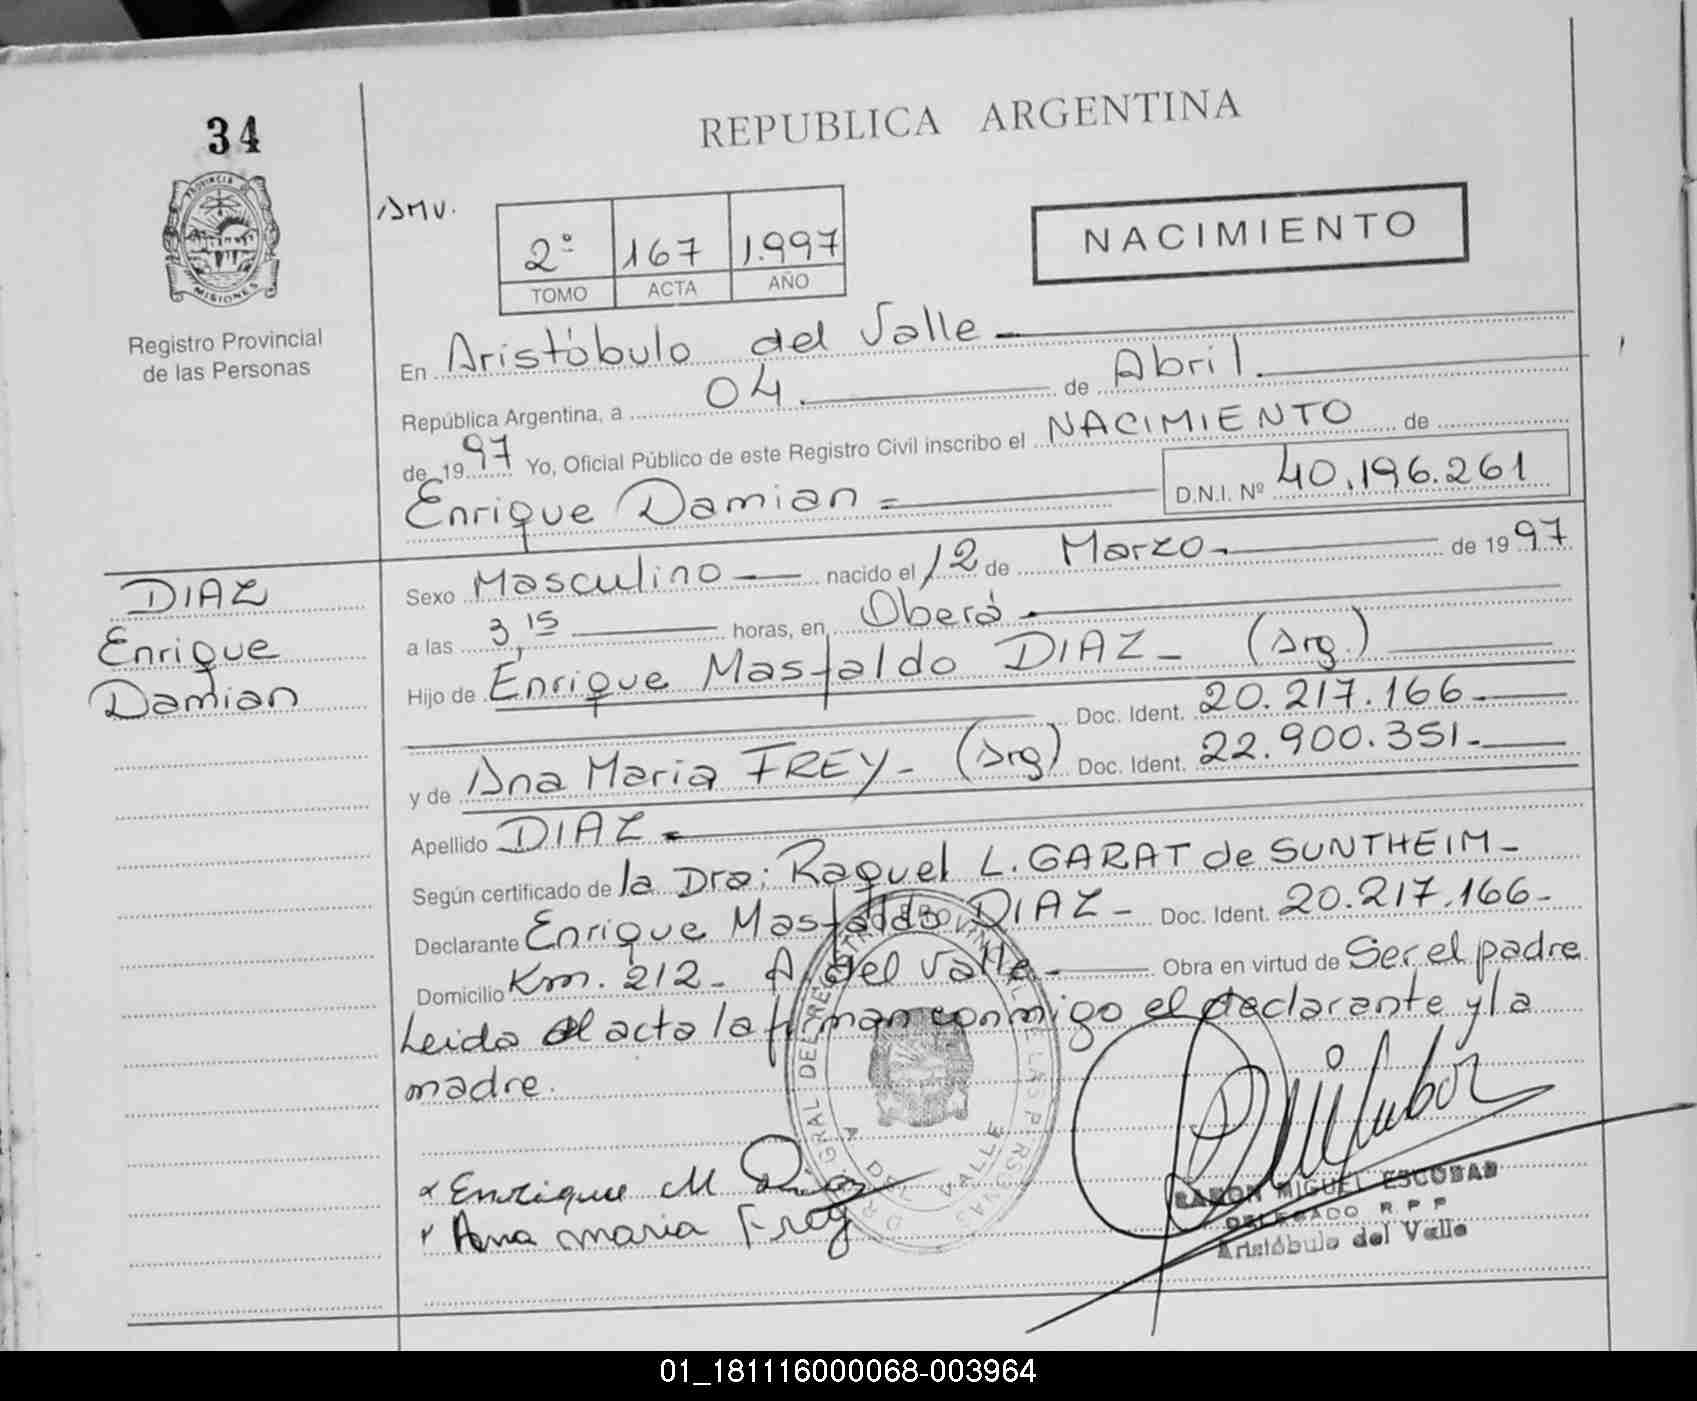 34
PROVINCIA DE
MISIONES
Registro Provincial
de las Personas
REPUBLICA ARGENTINA
AMV.
2º 167 1.997
TOMO ACTA AÑO
NACIMIENTO
En Aristóbulo del Valle
República Argentina, a 04 de Abril
de 1997 Yo, Oficial Público de este Registro Civil inscribo el NACIMIENTO de
Enrique Damian = D.N.I. Nº 40.196.261
DIAZ
Enrique
Damian
Sexo Masculino nacido el 12 de Marzo de 1997
a las 3,15 horas, en Oberá
Hijo de Enrique Masfaldo DIAZ - (Arg.)
Doc. Ident. 20.217.166
y de Ana Maria FREY - (Arg) Doc. Ident. 22.900.351
Apellido DIAZ
Según certificado de la Dra: Raquel L. GARAT de SUNTHEIM -
Declarante Enrique Masfaldo DIAZ - Doc. Ident. 20.217.166 -
Domicilio Km. 212 - A. del Valle - Obra en virtud de Ser el padre
Leida el acta la firman conmigo el declarante y la
madre.
x Enrique M Diaz
x Ana maria Frey
RAMON MIGUEL ESCOBAR
DELEGADO R.P.P
Aristóbulo del Valle
01_181116000068-003964